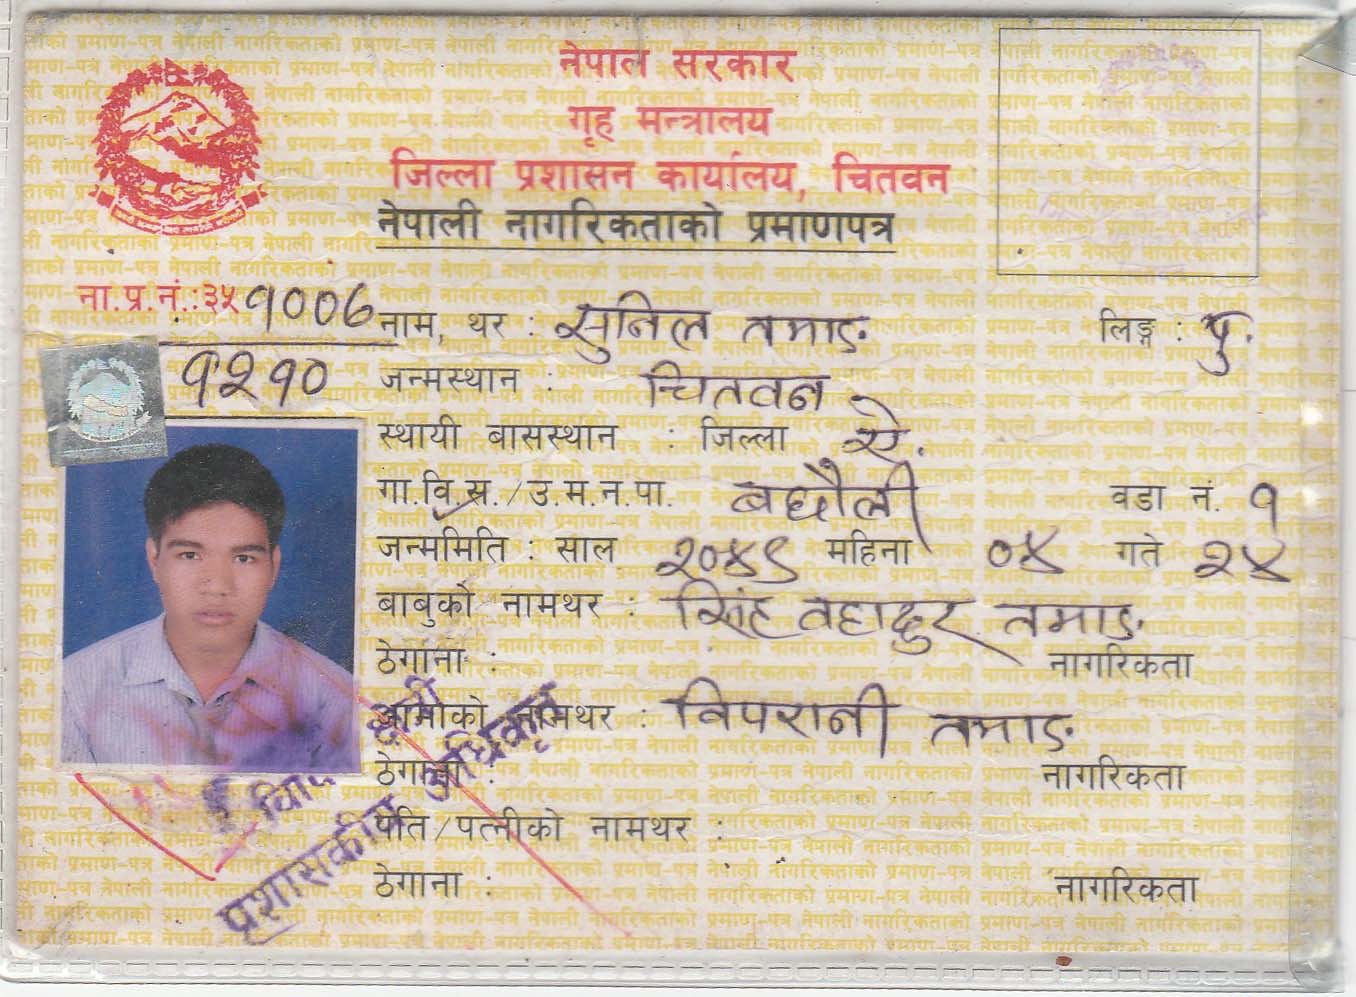 नेपाल सरकार
गृह मन्त्रालय
जिल्ला प्रशासन कार्यालय, चितवन
नेपाली नागरिकताको प्रमाणपत्र
ना.प्र.नं.:३५१००६
१२१०
नाम, थर : सुनिल तमाङ लिङ्ग : पु.
जन्मस्थान : चितवन
स्थायी बासस्थान : जिल्ला ऐ.
गा.वि.स./उ.म.न.पा. बछौली वडा नं. १
जन्ममिति : साल २०४९ महिना ०४ गते २४
बाबुको नामथर : सिंह बहादुर तमाङ
ठेगाना : नागरिकता
आमाको नामथर : तमाङ
ठेगाना : नागरिकता
पति/पत्नीको नामथर :
ठेगाना : नागरिकता
प्रशासकीय अधिकृत